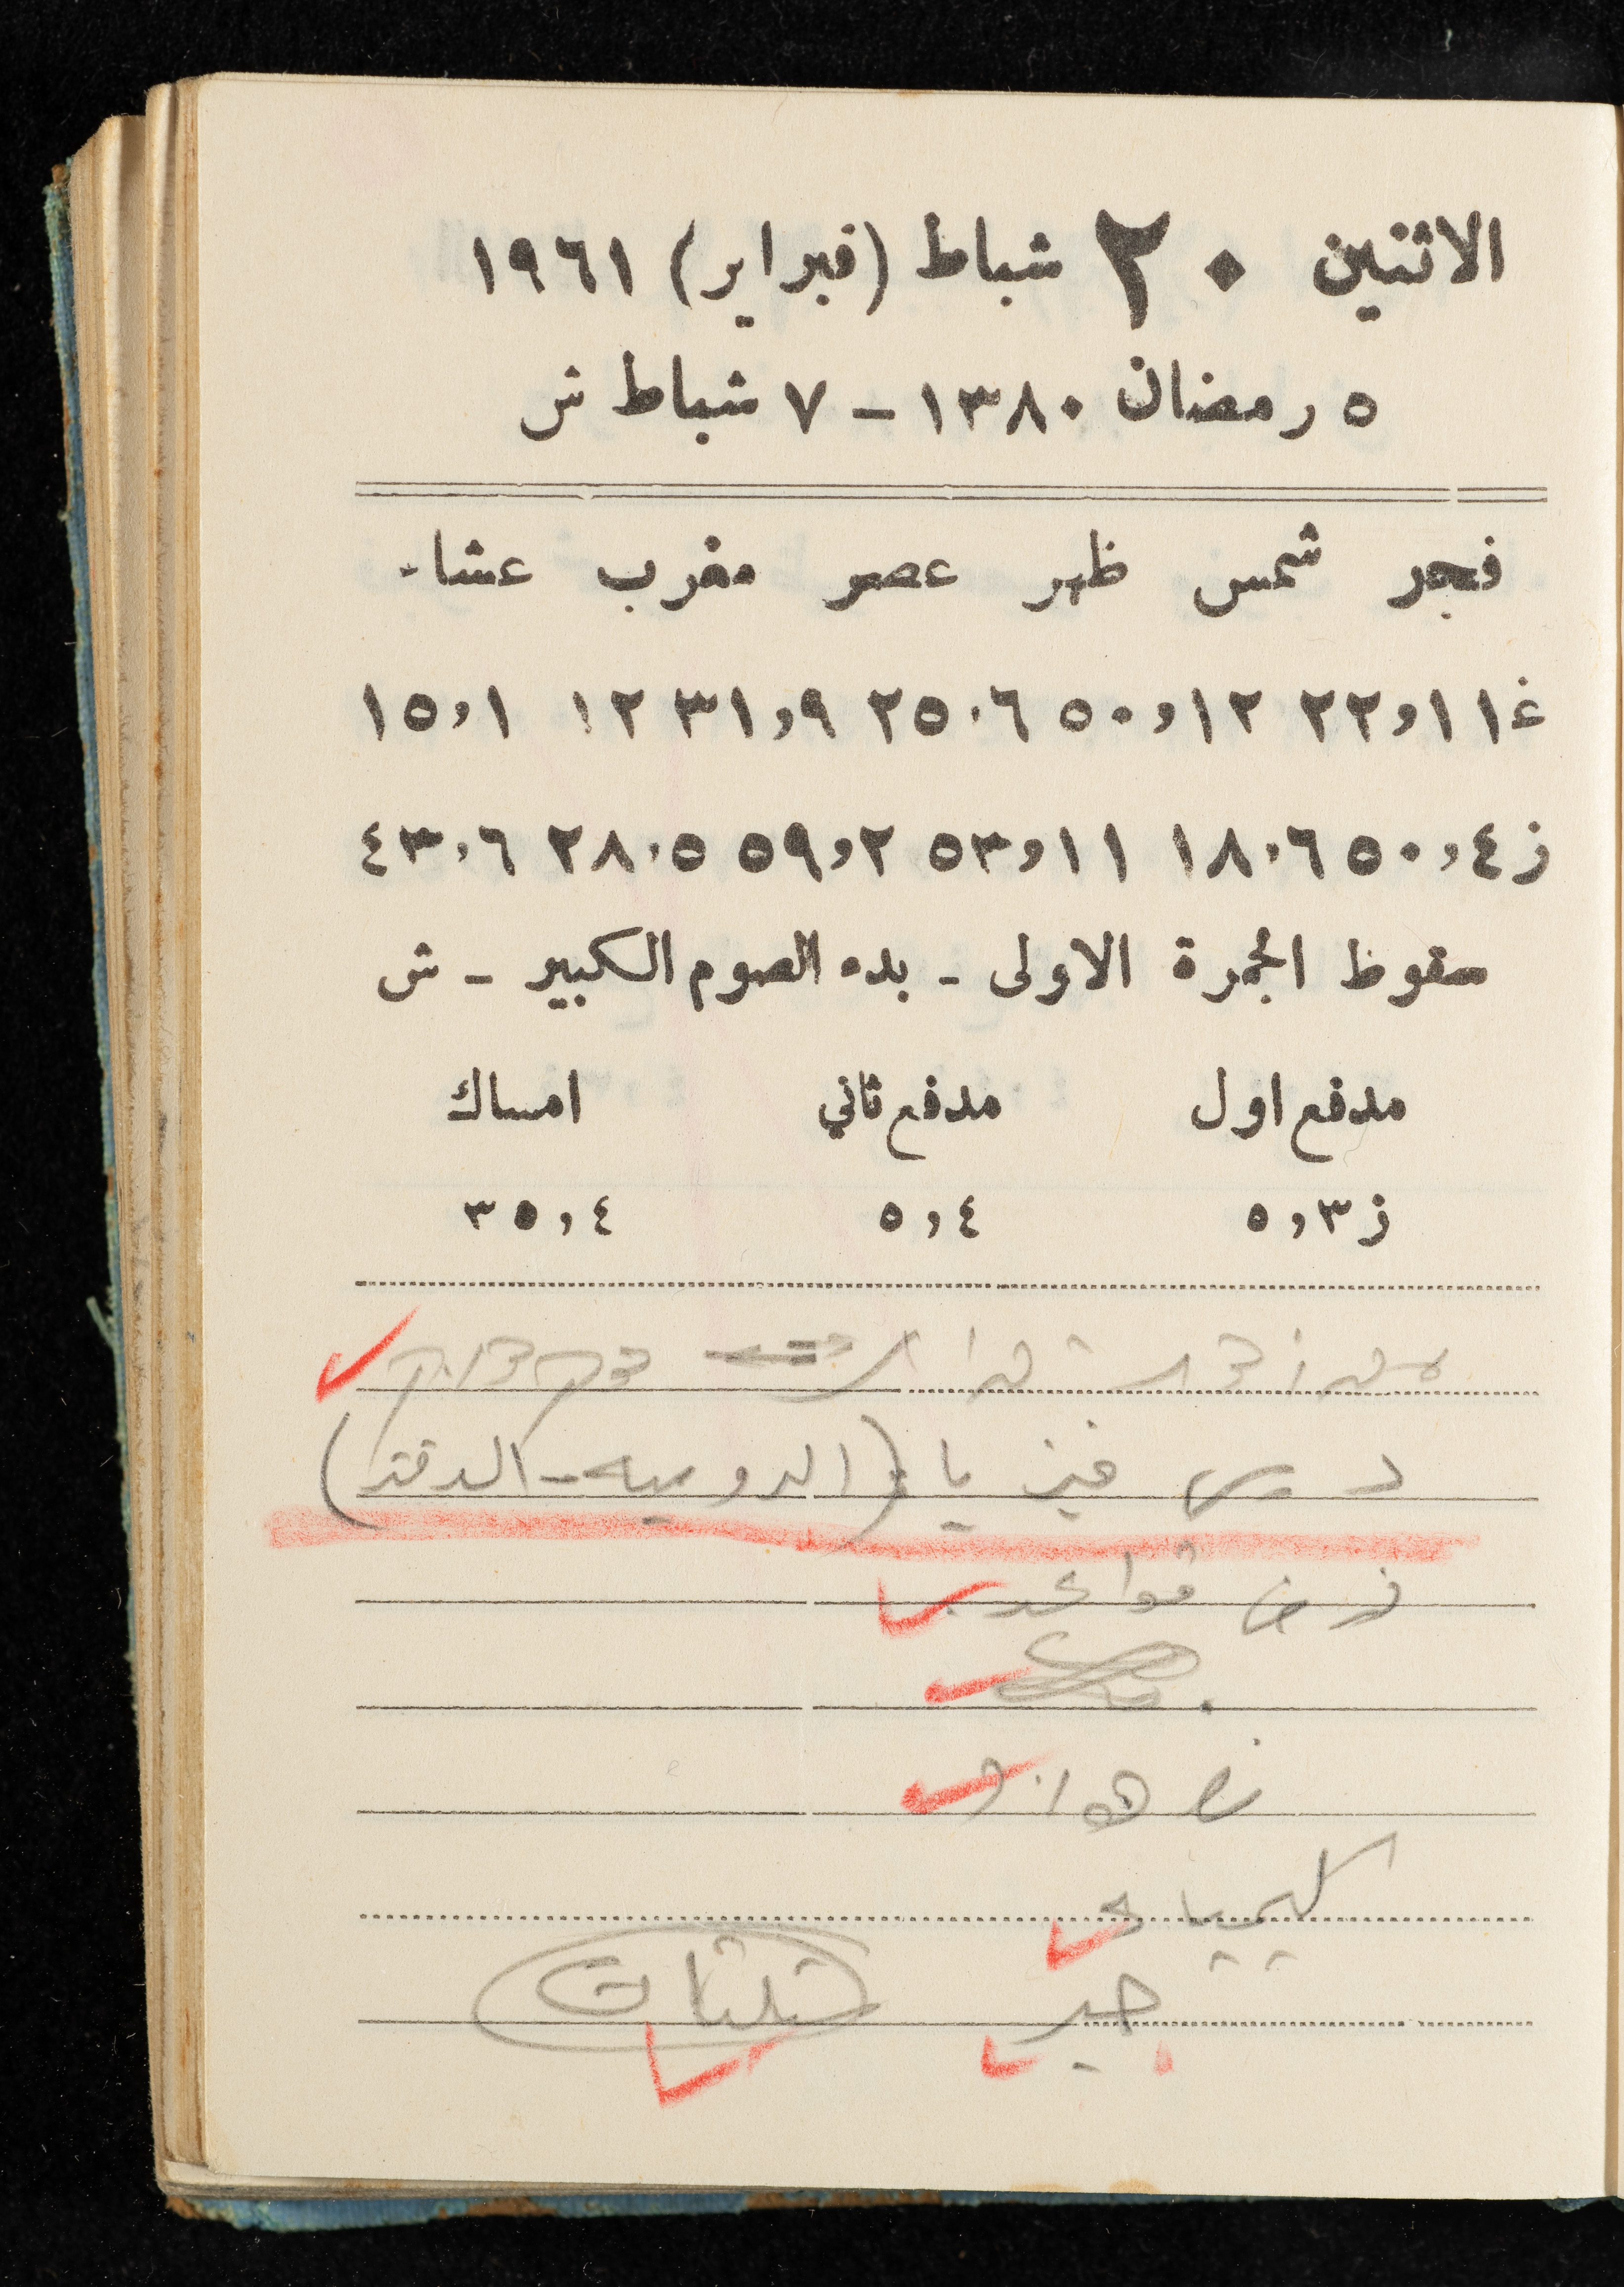 الاثنين ٢٠ شباط (فبراير) ١٩٦١
٥ رمضان ١٣٨٠ - ٧ شباط ش
فجر شمس ظهر عصر مغرب عشاء
غ ١١,٢٢ ١٢,٥٠ ٦,٢٥ ٩,٣١ ١٢ ١,١٥
ز ٤,٥٠ ٦,١٨ ١١,٥٣ ٢,٥٩ ٥,٢٨ ٦,٤٣
سقوط الجمرة الاولى - بدء الصوم الكبير - ش
مدفع اول مدفع ثاني امساك
ز ٣,٥ ٤,٥ ٤,٣٥
درس فيزيا (الدوسيه - الدفتر)
فرض قواعد
كيمياء
جبر مثلثات